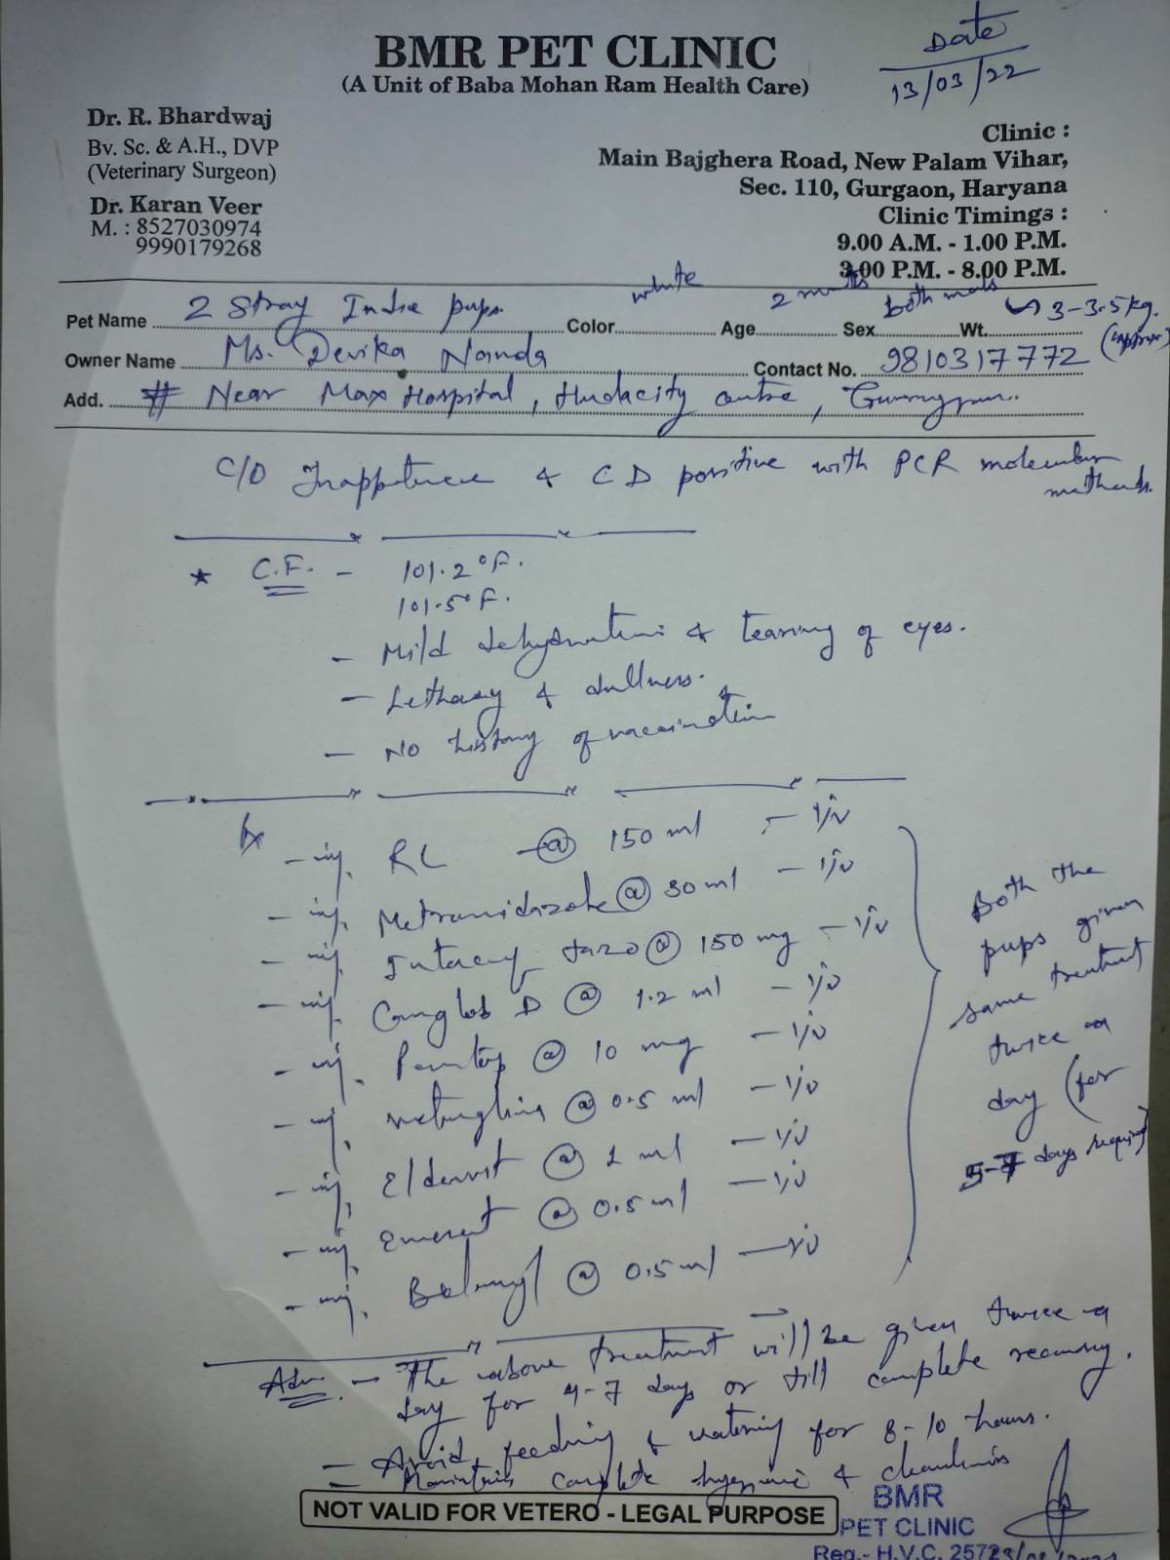 Date
13/03/22
BMR PET CLINIC
(A Unit of Baba Mohan Ram Health Care)
Dr. R. Bhardwaj
Bv. Sc. & A.H., DVP
(Veterinary Surgeon)
Dr. Karan Veer
M. : 8527030974
9990179268
Clinic :
Main Bajghera Road, New Palam Vihar,
Sec. 110, Gurgaon, Haryana
Clinic Timings :
9.00 A.M. - 1.00 P.M.
3.00 P.M. - 8.00 P.M.
Pet Name 2 Stray Indie pups Color white Age 2 months Sex both male Wt. 3-3.5 kg. (approx)
Owner Name Ms. Devika Nanda Contact No. 9810317772
Add. # Near Max Hospital, Hudacity centre,
C/O Inappetence & CD positive with PCR molecular
methods.
* C.F. - 101.2°F.
101.5°F.
- Mild dehydration & tearing of eyes.
- Lethargy & dullness.
- No history of vaccination
Rx
- inj. RL @ 150 ml - I/V
- inj. Metronidazole @ 30 ml - I/V
- inj. Intacef tazo @ 150 mg - I/V
- inj. @ 1.2 ml - I/V
- inj. Pantop @ 10 mg - I/V
- inj. @ 0.5 ml - I/V
- inj. Eldervit @ 1 ml - I/V
- inj. Emeset @ 0.5 ml - I/V
- inj. Belamyl @ 0.5 ml - I/V
Both the
pups given
same treatment
twice a
day (for
5-7 days required)
Adv. - The above treatment will be given twice a
day for 4-7 days or till complete recovery.
- Avoid feeding & watering for 8-10 hours.
- Maintain complete hygiene & cleanliness
NOT VALID FOR VETERO - LEGAL PURPOSE
BMR
PET CLINIC
Reg.- H.V.C. 257